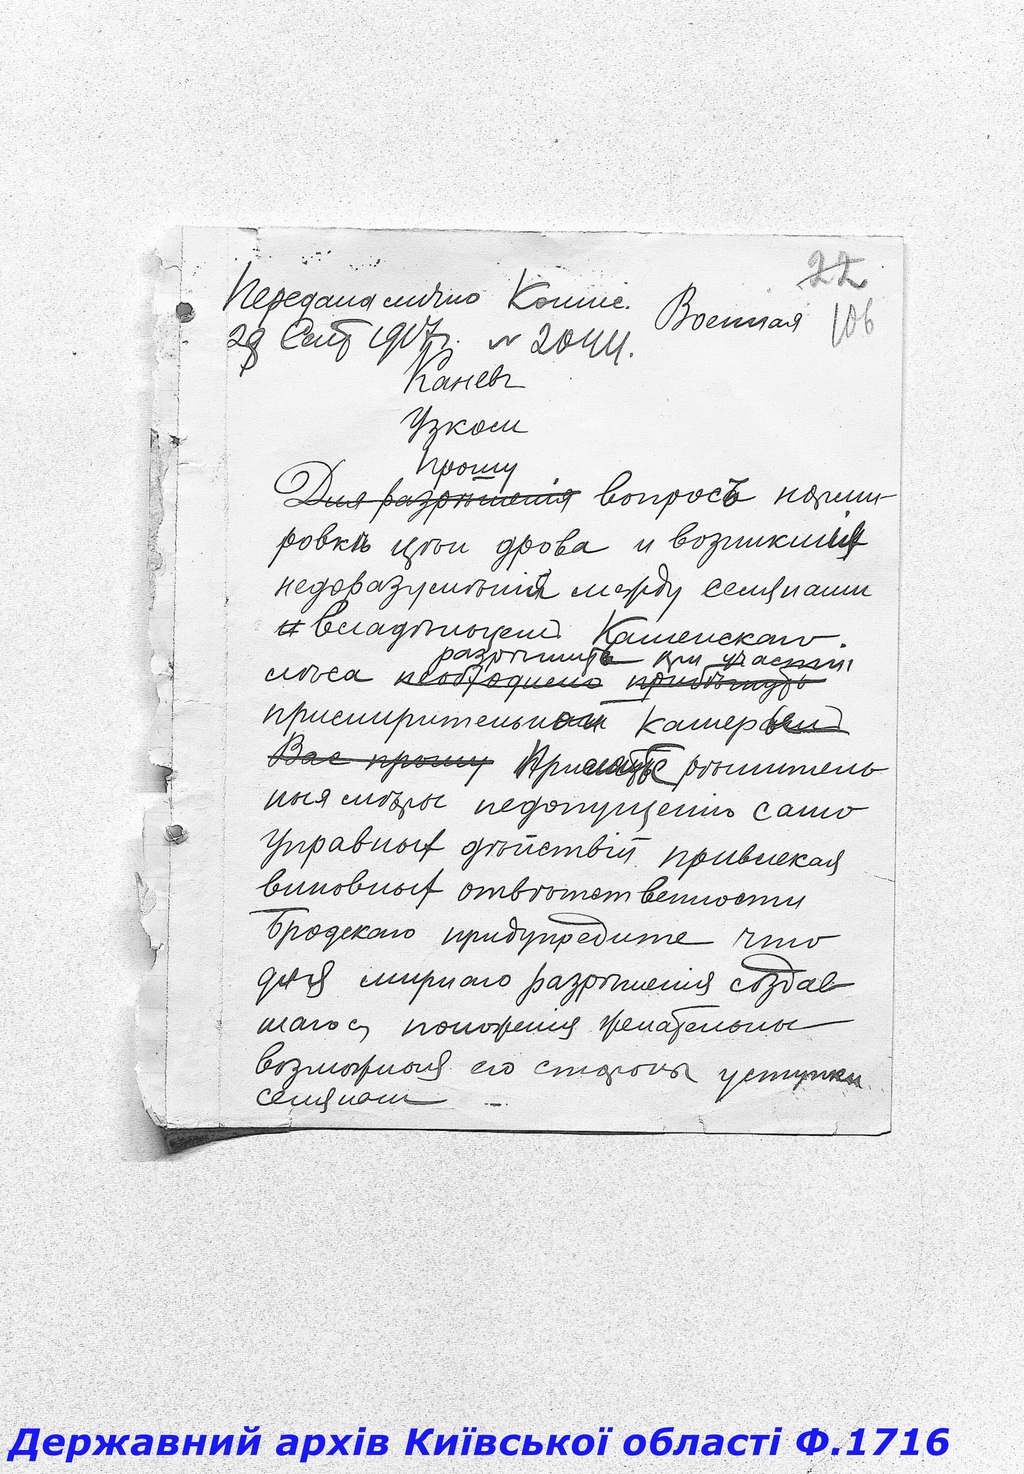 22
Передана лично Комис. Военная 106
29 Сент 1917 г. № 2044.
Канев
Уʒком
прошу
Для разрѣшенія вопросъ норми
ровкѣ цѣн дрова и возникшія
недоразумѣній между селянами
и владѣльцем Каменскаго
разрѣшить при участіи
лѣса необходимо прибѣгнуть
примирительной камеры
Вас прошу Примите рѣшитель
ныя мѣры недопущенію само
управных дѣйствій привлекая
виновных отвѣтственности
Бродскаго придупредите что
для мирнаго разрѣшенія создав
шагося положенія желательны
возможныя его стороны уступки
селянам
Державний архів Київської області Ф.1716